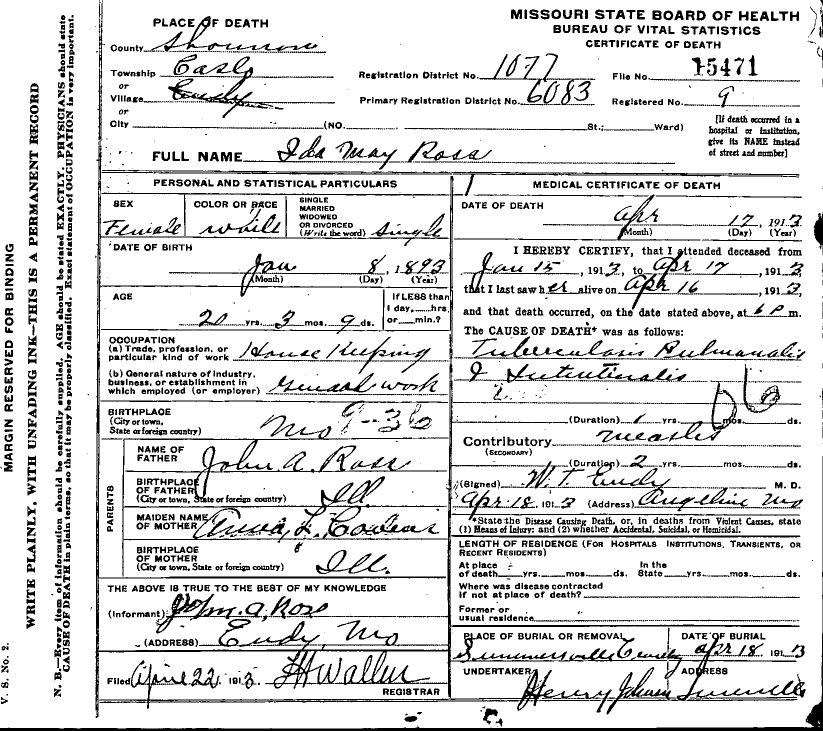 MISSOURI STATE BOARD OF HEALTH
BUREAU OF VITAL STATISTICS
CERTIFICATE OF DEATH
PLACE OF DEATH
County Shannon
Township
or
Village
or
City (NO. St.; Ward)
Registration District No. 1077 File No. 15471
Primary Registration District No. 6083 Registered No. 9
[If death occurred in a
hospital or institution,
give its NAME instead
of street and number]
FULL NAME Ida May Ross
PERSONAL AND STATISTICAL PARTICULARS
SEX
Female
COLOR OR RACE
white
SINGLE
MARRIED
WIDOWED
OR DIVORCED
(Write the word) single
DATE OF BIRTH
Jan 8, 1893
(Month) (Day) (Year)
AGE
20 yrs. 3 mos. 9 ds.
If LESS than
1 day, hrs.
or min.?
OCCUPATION
(a) Trade, profession, or
particular kind of work House Keeping
(b) General nature of industry,
business, or establishment in
which employed (or employer) General work
BIRTHPLACE
(City or town,
State or foreign country) Mo
PARENTS
NAME OF
FATHER John A. Ross
BIRTHPLACE
OF FATHER
(City or town, State or foreign country) Ill.
MAIDEN NAME
OF MOTHER
BIRTHPLACE
OF MOTHER
(City or town, State or foreign country) Ill.
THE ABOVE IS TRUE TO THE BEST OF MY KNOWLEDGE
(Informant) John A. Ross
(ADDRESS) Eudy, Mo
Filed April 22, 1913
REGISTRAR
MEDICAL CERTIFICATE OF DEATH
DATE OF DEATH
Apr 17, 1913
(Month) (Day) (Year)
I HEREBY CERTIFY, that I attended deceased from
Jan 15, 1913, to Apr 17, 1913
that I last saw her alive on Apr 16, 1913,
and that death occurred, on the date stated above, at 6 P m.
The CAUSE OF DEATH* was as follows:
Tuberculosis Pulmonalis
& Intestinalis
(Duration) 1 yrs. mos. ds.
Contributory measles
(SECONDARY)
(Duration) 2 yrs. mos. ds.
(Signed) W. T. Eudy M. D.
Apr 18, 1913 (Address) Angeline Mo
*State the Disease Causing Death, or, in deaths from Violent Causes, state
(1) Means of Injury; and (2) whether Accidental, Suicidal, or Homicidal.
LENGTH OF RESIDENCE (FOR HOSPITALS INSTITUTIONS, TRANSIENTS, OR
RECENT RESIDENTS)
At place
of death yrs. mos. ds.
In the
State yrs. mos. ds.
Where was disease contracted
if not at place of death?
Former or
usual residence
PLACE OF BURIAL OR REMOVAL
Summersville
DATE OF BURIAL
Apr 18, 1913
UNDERTAKER
Henry
ADDRESS
MARGIN RESERVED FOR BINDING
WRITE PLAINLY, WITH UNFADING INK—THIS IS A PERMANENT RECORD
N. B.—Every item of information should be carefully supplied. AGE should be stated EXACTLY. PHYSICIANS should state
CAUSE OF DEATH in plain terms, so that it may be properly classified. Exact statement of OCCUPATION is very important.
V. S. No. 2.